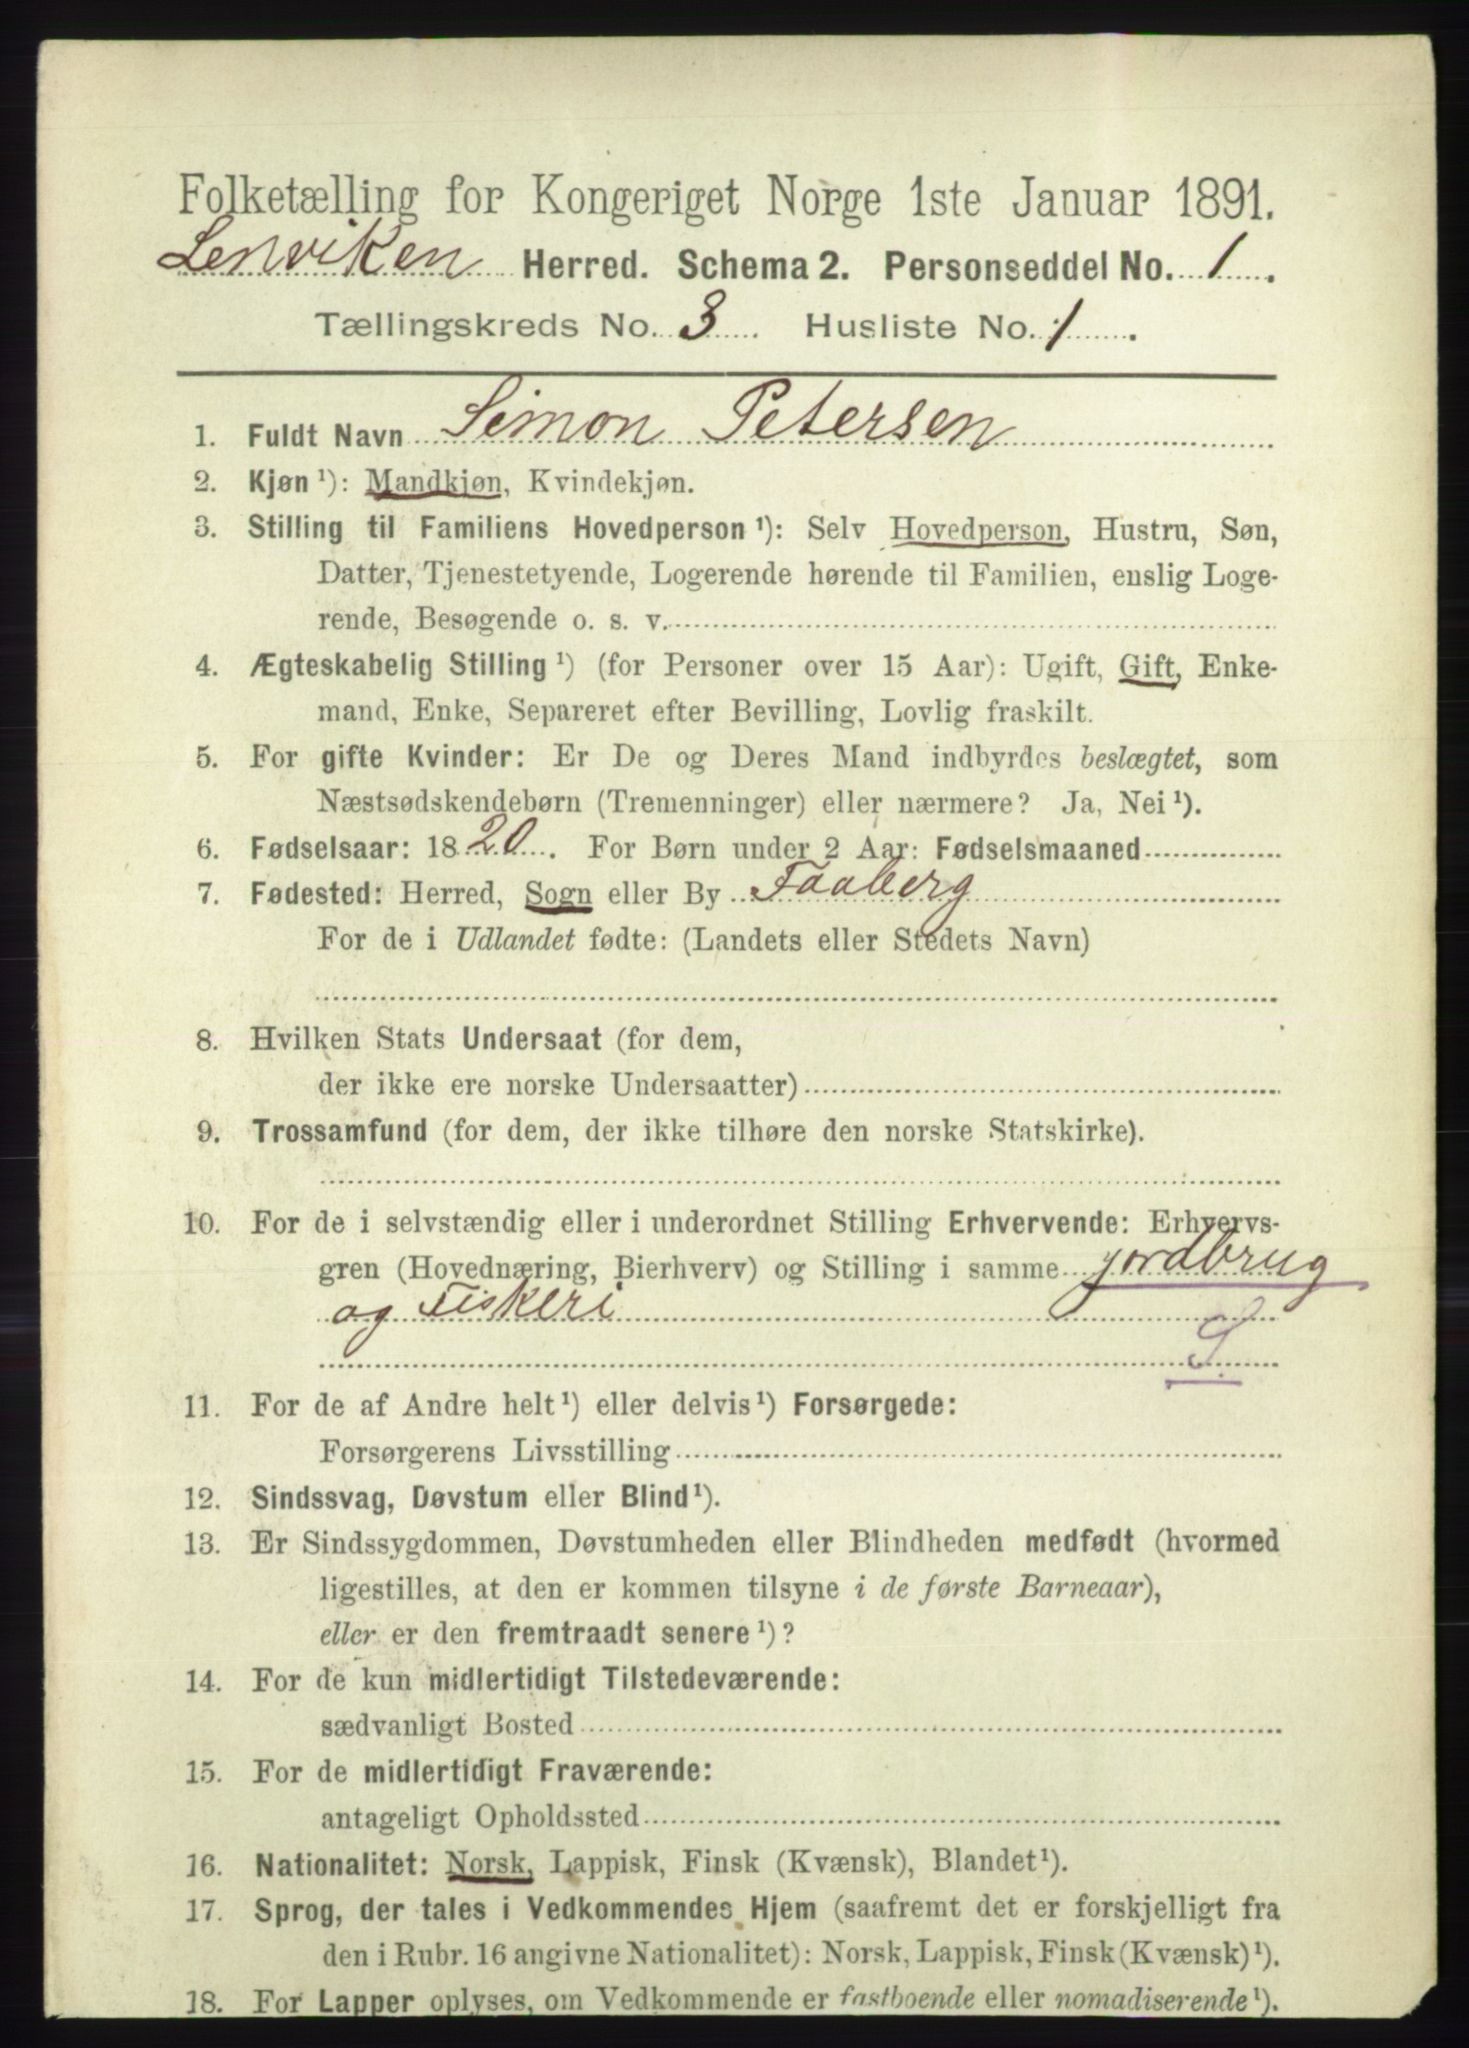 Folketælling for Kongeriget Norge 1ste Januar 1891.
Lenviken Herred. Schema 2. Personseddel No. 1.
Tællingskreds No. 3 Husliste No. 1.
1. Fuldt Navn Simon Petersen
2. Kjøn ¹): Mandkjøn, Kvindekjøn.
3. Stilling til Familiens Hovedperson ¹): Selv Hovedperson, Hustru, Søn,
Datter, Tjenestetyende, Logerende hørende til Familien, enslig Loge-
rende, Besøgende o. s. v.
4. Ægteskabelig Stilling ¹) (for Personer over 15 Aar): Ugift, Gift, Enke-
mand, Enke, Separeret efter Bevilling, Lovlig fraskilt.
5. For gifte Kvinder: Er De og Deres Mand indbyrdes beslægtet, som
Næstsødskendebørn (Tremenninger) eller nærmere? Ja, Nei ¹).
6. Fødselsaar: 1820. For Børn under 2 Aar: Fødselsmaaned
7. Fødested: Herred, Sogn eller By Faaberg
For de i Udlandet fødte: (Landets eller Stedets Navn)
8. Hvilken Stats Undersaat (for dem,
der ikke ere norske Undersaatter)
9. Trossamfund (for dem, der ikke tilhøre den norske Statskirke).
10. For de i selvstændig eller i underordnet Stilling Erhvervende: Erhvervs-
gren (Hovednæring, Bierhverv) og Stilling i samme jordbrug
og Fiskeri
S
11. For de af Andre helt ¹) eller delvis ¹) Forsørgede:
Forsørgerens Livsstilling
12. Sindssvag, Døvstum eller Blind ¹).
13. Er Sindssygdommen, Døvstumheden eller Blindheden medfødt (hvormed
ligestilles, at den er kommen tilsyne i de første Barneaar),
eller er den fremtraadt senere ¹)?
14. For de kun midlertidigt Tilstedeværende:
sædvanligt Bosted
15. For de midlertidigt Fraværende:
antageligt Opholdssted
16. Nationalitet: Norsk, Lappisk, Finsk (Kvænsk), Blandet ¹).
17. Sprog, der tales i Vedkommendes Hjem (saafremt det er forskjelligt fra
den i Rubr. 16 angivne Nationalitet): Norsk, Lappisk, Finsk (Kvænsk) ¹).
18. For Lapper oplyses, om Vedkommende er fastboende eller nomadiserende ¹).